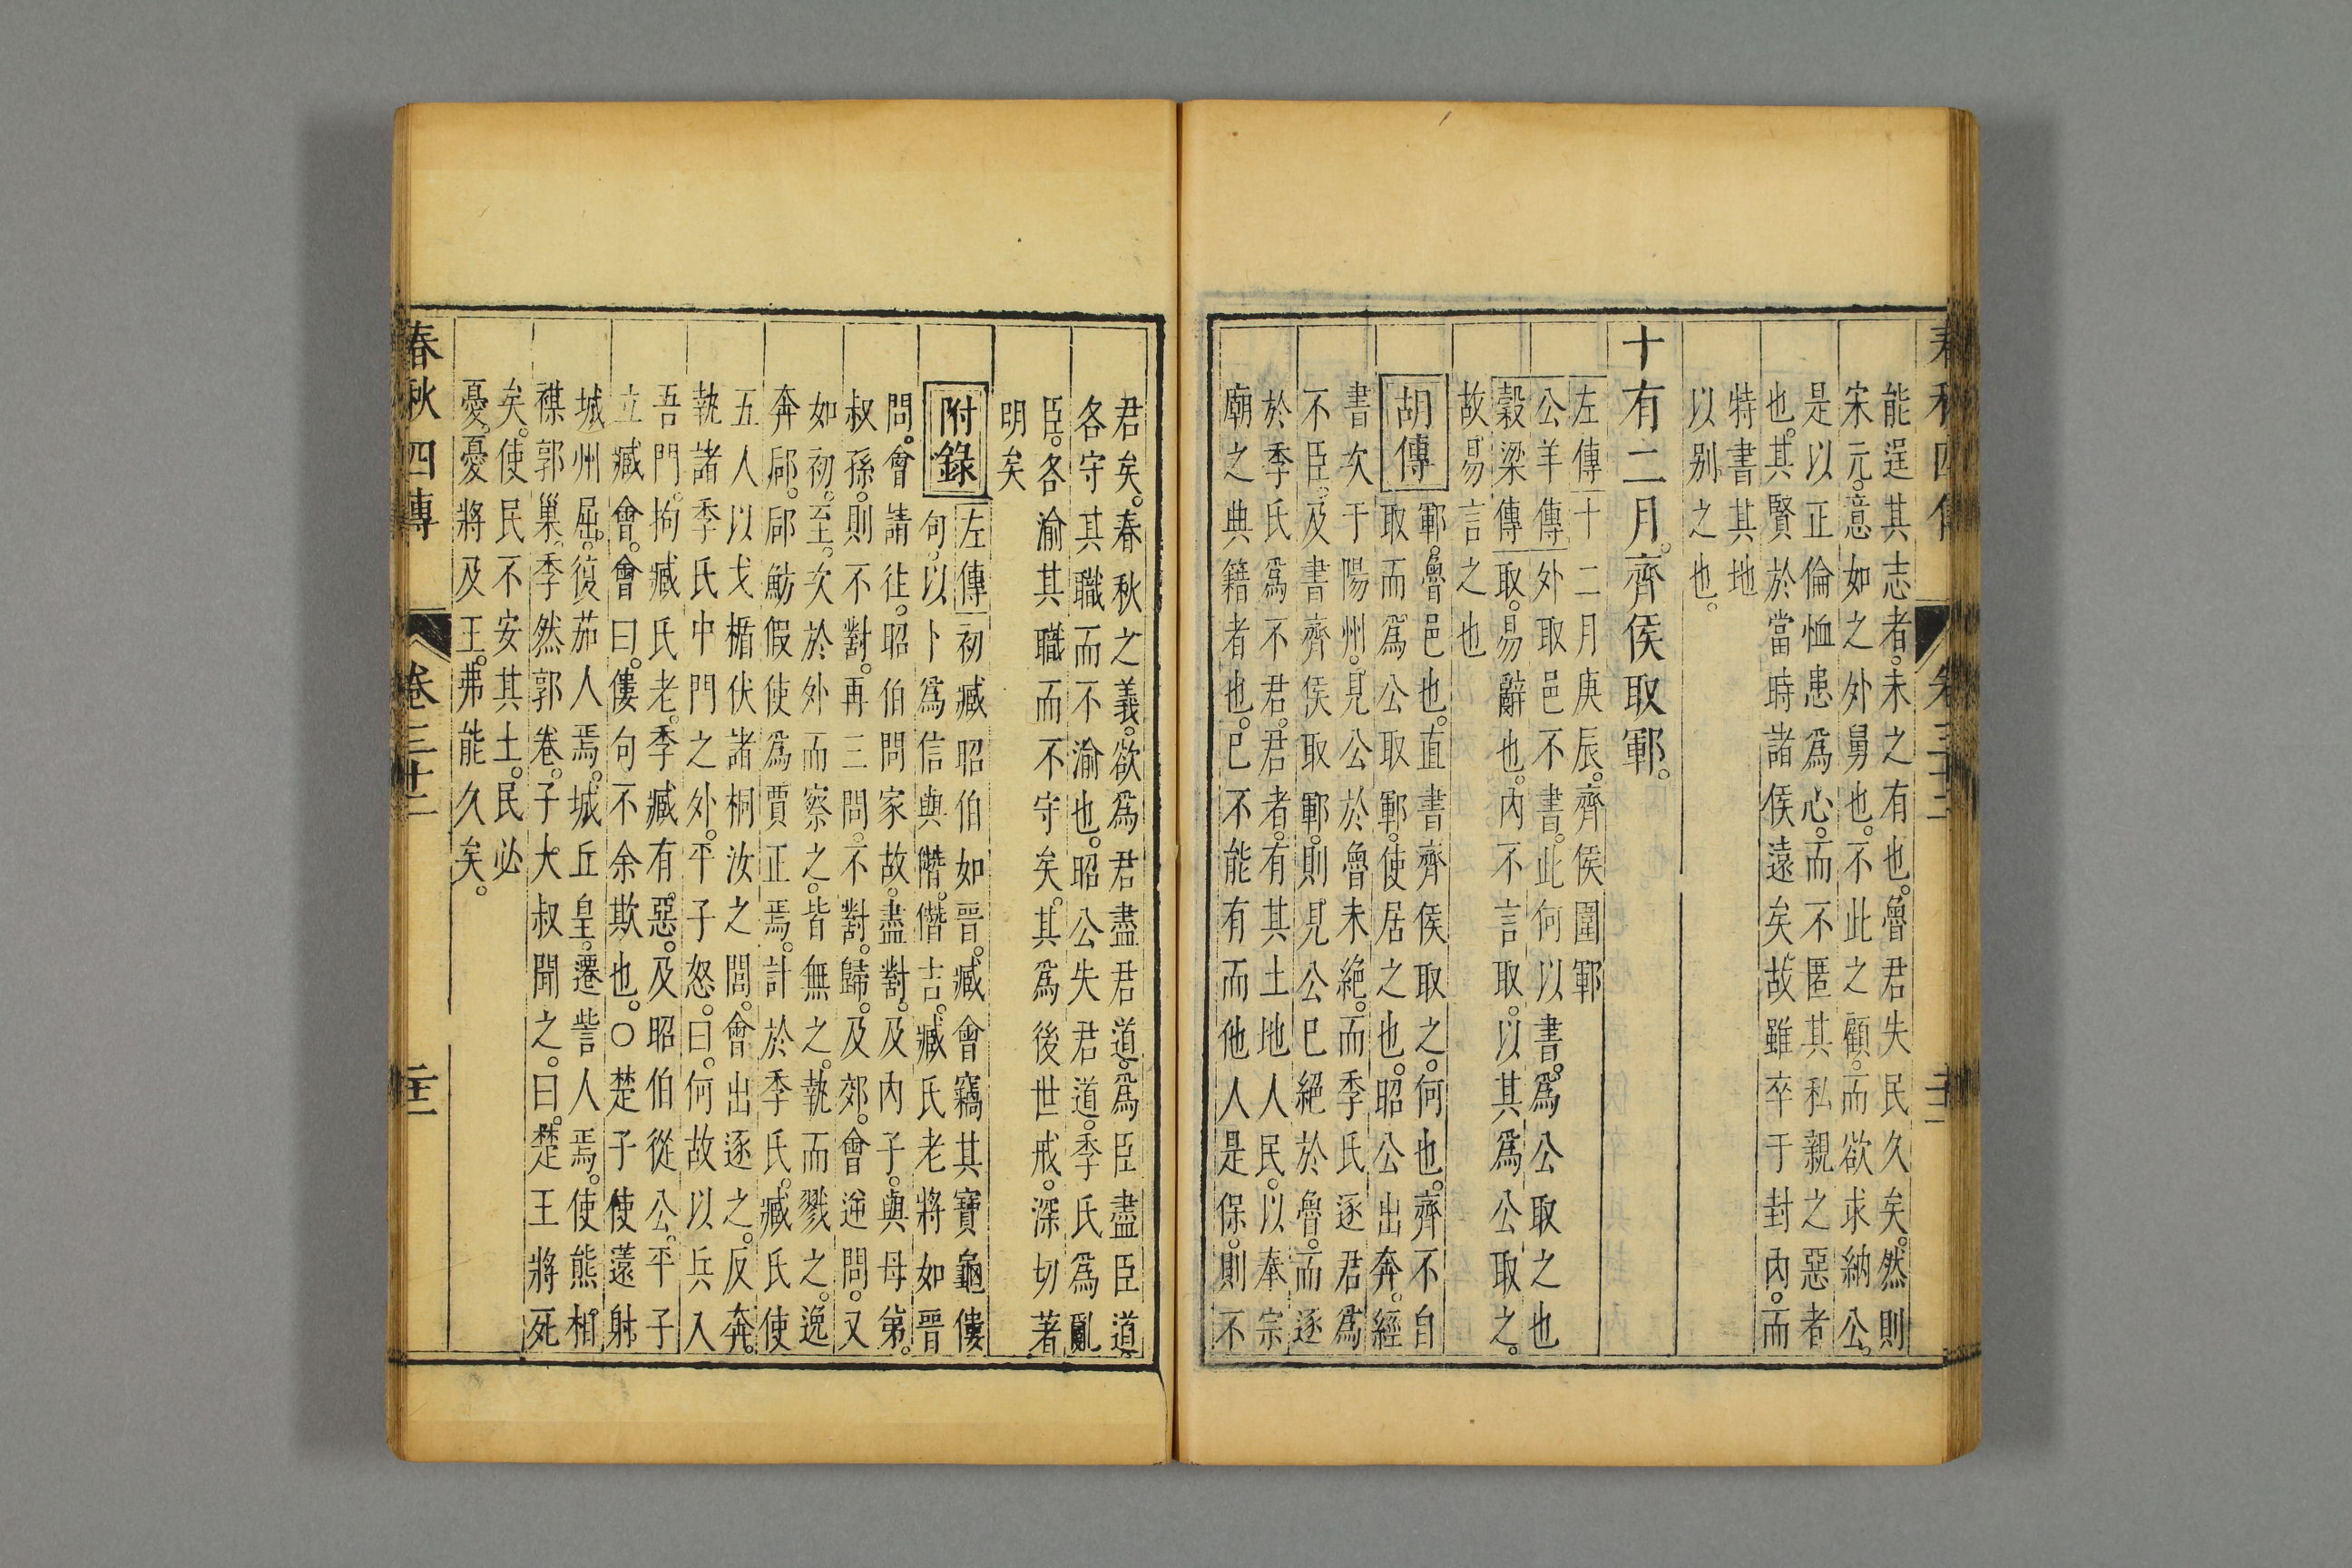 春秋四傳 卷三十二
能逞其志者未之有也魯君失民久矣然則
宋元意如之外舅也不此之顧而欲求納公
是以正倫恤患爲心而不匿其私親之惡者
也其賢於當時諸侯遠矣故雖卒于封內而
特書其地
以别之也
十有二月齊侯取鄆
左傳十二月庚辰齊侯圍鄆
公羊傳外取邑不書此何以書爲公取之也
穀梁傳取易辭也內不言取以其爲公取之
故易言之也
胡傳
鄆魯邑也直書齊侯取之何也齊不自
取而爲公取鄆使居之也昭公出奔經
書次于陽州見公於魯未絶而季氏逐君爲
不臣及書齊侯取鄆則見公已絕於魯而逐
於季氏爲不君君者有其土地人民以奉宗
廟之典籍者也已不能有而他人是保則不
君矣春秋之義欲爲君盡君道爲臣盡臣道
各守其職而不渝也昭公失君道季氏爲亂
臣各渝其職而不守矣其爲後世戒深切著
明矣
附錄
左傳初臧昭伯如晉臧會竊其寶龜僂
句以卜爲信與僭僭吉臧氏老將如晉
問會請往昭伯問家故盡對及內子與母弟
叔孫則不對再三問不對歸及郊會逆問又
如初至次於外而察之皆無之執而戮之逸
奔郈郈魴假使爲賈正焉計於季氏臧氏使
五人以戈楯伏諸桐汝之閭會出逐之反奔
執諸季氏中門之外平子怒曰何故以兵入
吾門拘臧氏老季臧有惡及昭伯從公平子
立臧會會曰僂句不余欺也○楚子使薳射
城州屈復茄人焉城丘皇遷訾人焉使熊相
禖郭巢季然郭卷子大叔聞之曰楚王將死
矣使民不安其土民必
憂憂將及王弗能久矣
春秋四傳 卷三十二